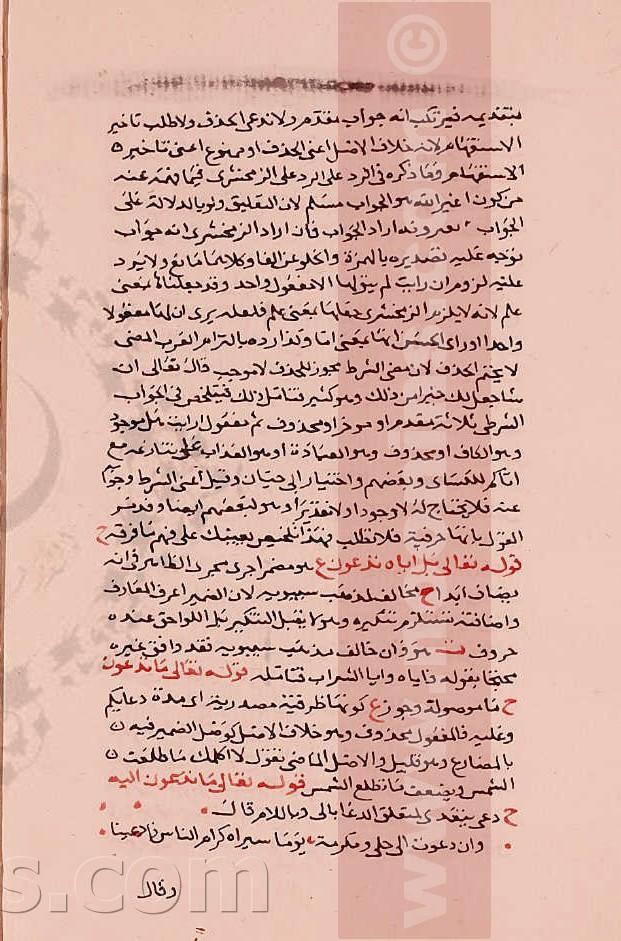 بتقديمه فيرتكب انه جواب مقدم ولا ندعى الحذف ولا طلب تاخير
الاستفهام لانه خلاف الاصل اعنى الحذف او ممنوع اعنى تاخير
الاستفهام وما ذكره فى الرد على الرد على الزمخشرى فيما فهمه عنه
من كون اغير الله هو الجواب مسلم لان التعليق ونوبالدلالة على
الجواب اراد الجواب فان اراد الزمخشرى انه جواب
توجه عليه تصديره بالهمزة والخلو عن الفا وكلاهما مانع ولا يرد
عليه لزوم ان رايت لم يتولها الا مفعول واحد وقد جعلتاها بمعنى
علم لانه لا يلزم الزمخشرى جعلها بمعنى علم فلعله يرى ان لها مفعولا
واحدا او راى الحسن انها بمعنى اما وكذا رده بالتزام العرب المضى
لا يحتم الحذف لان مضى الشرط مجوز للحذف لا موجب قال تعالى ان
شا جعل لك خيرا من ذلك وهو كثير تتامل ذلك فيتلخص فى الجواب
الشرطى ثلاثة مقدم او موخر او محذوف ثم مفعول ارايت هل موجود
وهو الكاف او محذوف وهو العبادة او هو العذاب على يتنازعه مع
اتاكم للكساى وبعضهم واختيار ابى حيان وقيل اغنى الشرط وجوابه
عنه فلا يحتاج له لا وجودا ولا تقديرا وهو لبعضهم ايضا وقد مر
القول بانها حرفية فلا تطلب فهذا تلخيص يعينك على فهم ما فرقه ح
قوله تعالى بل اياه تدعون ع هو مضمر اجرى مجرى الظاهر فى انه
يضاف ابدا ح مخالف لمذهب سيبويه لان الضمير اعرف المعارف
واضافته تستلزم تنكيره وهو لا يقبل التنكير بل اللواحق عنده
حروف ت هو وان خالف مذهب سيبويه فقد وافق غيره
محتجا بقوله فاياه وايا الشراب فتامله قوله تعالى ما تدعون
ح ما موصولة وجوز ع كونها ظرفية مصدرية اى مدة دعايكم
وعليه فالمفعول محذوف وهو خلاف الاصل كوصل الضمير فيه
بالمضارع وهو قليل والاصل الماضى تقول لا اكلمك ما طلعت
الشمس ويضعف ما تطلع الشمس قوله تعالى ما تدعون اليه
ح دعى يتعدى لمتعلق الدعا بالى وباللام قال
وان دعوت الى جلى ومكرمة يوما سراة كرام الناس فادعينا
وقال